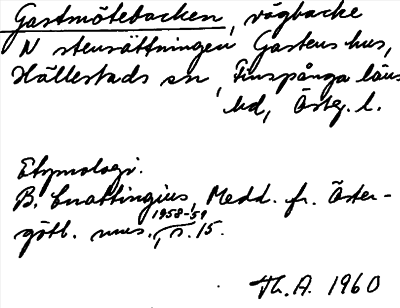 Gastmötebacken, vägbacke
N stensättningen Gastens hus,
Hällestads sn, Finspånga läns
hd, Östg. l.
Etymologi.
B. Cnattingius, Medd. fr. Öster-
götl. mus. 1958-59, s. 15.
Th. A. 1960